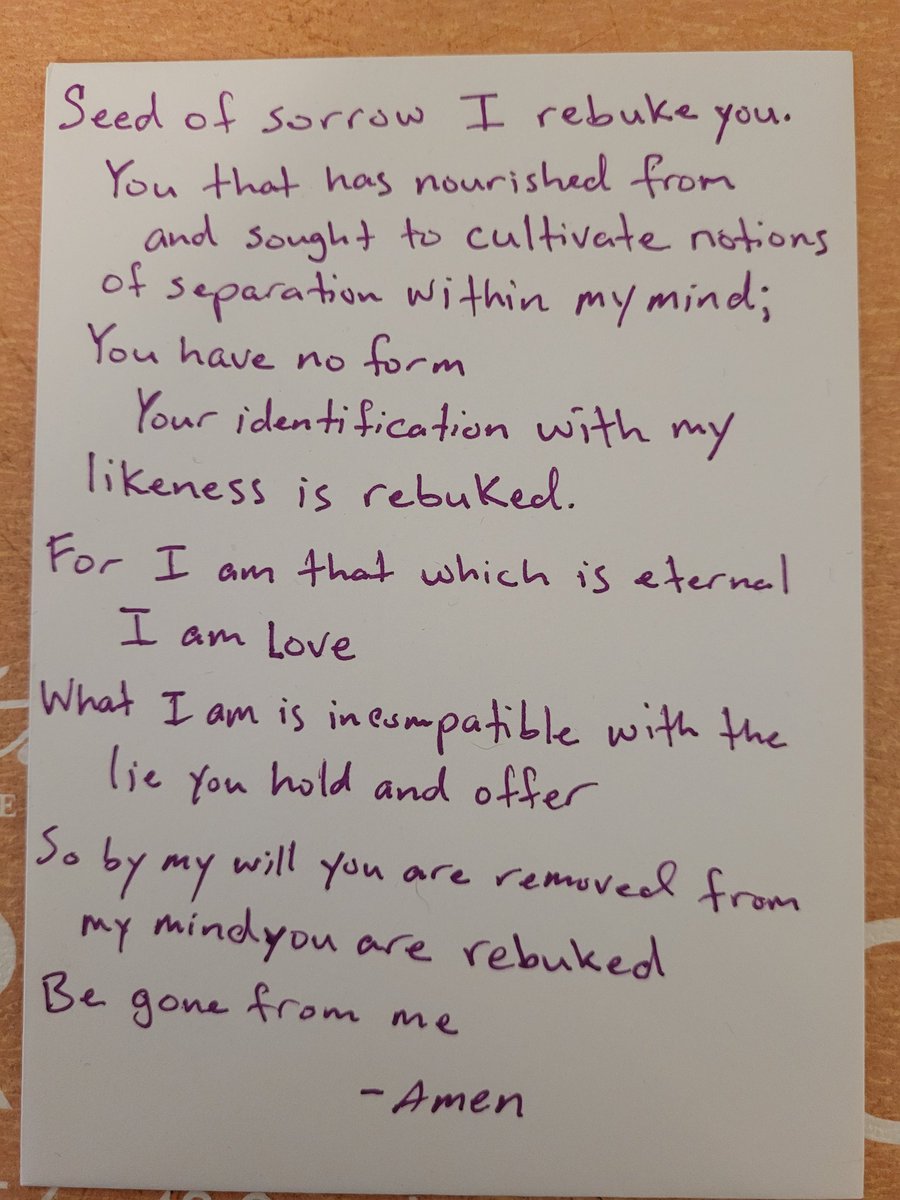 Seed of sorrow I rebuke you.
You that has nourished from
and sought to cultivate notions
of separation within my mind;
You have no form
Your identification with my
likeness is rebuked.
For I am that which is eternal
I am Love
What I am is incompatible with the
lie you hold and offer
So by my will you are removed from
my mind you are rebuked
Be gone from me
- Amen